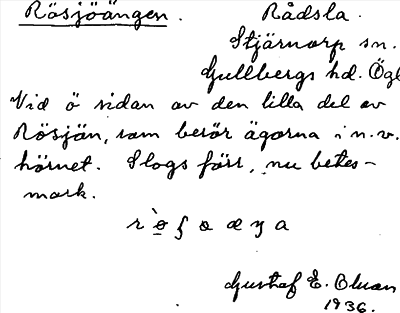 Rösjöängen. Rådsla.
Stjärnorp sn.
Gullbergs hd. Ögl
Vid ö sidan av den lilla del av
Rösjön, som berör ägorna i n.v.
hörnet. Slogs förr, nu betes-
mark.
Gustaf E. Bluan
1936.